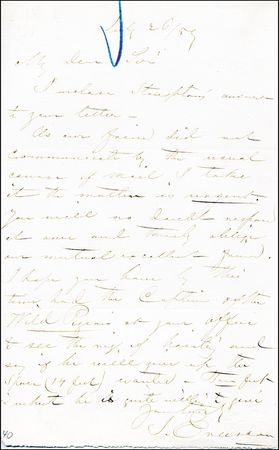 July 26/59
My Dear Sir
I enclose answer
to your letter —
As our friend did not
communicate by the usual
course of mail I take
it the matter is urgent.
You will no doubt
at once and thereby oblige
our mutual excellent friend.
I hope you have by this
time had the Captain of the
Wild at your office
to see the and
say if he will give up the
space (14 feet) wanted.
is what he is quite to give
Yours truly
J. Ericsson
40